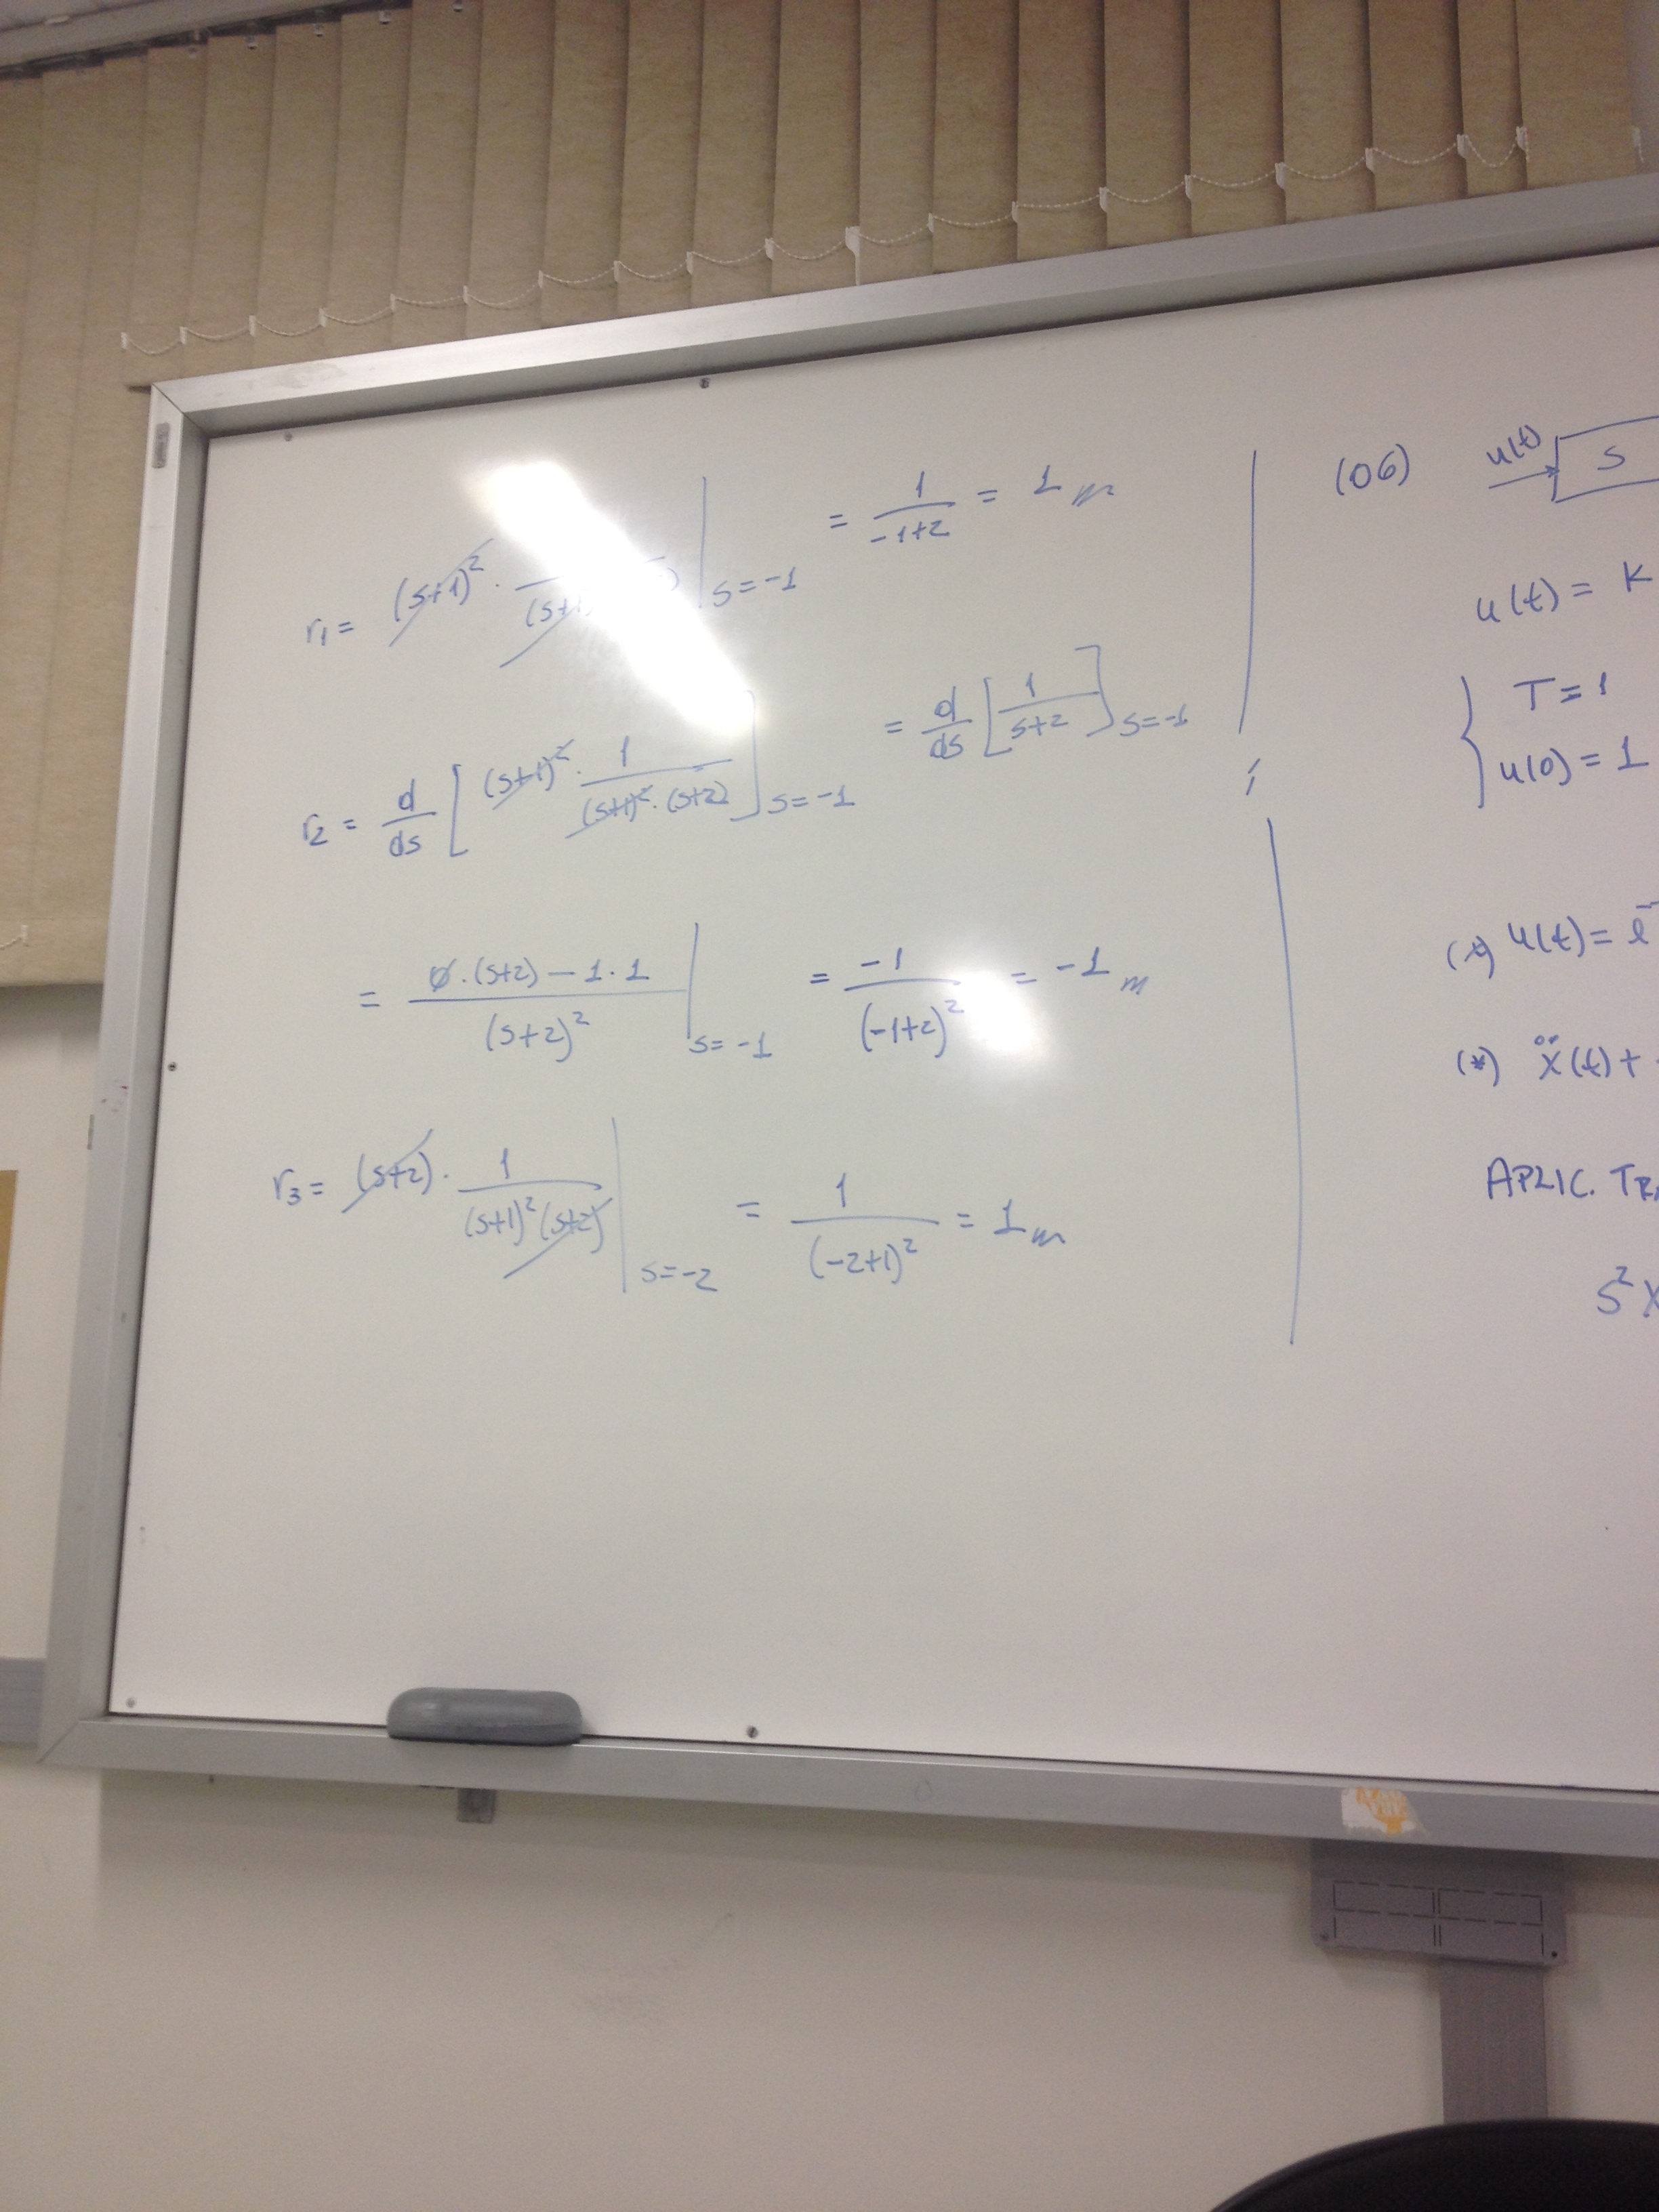 r₁ = (s+1)² · ――― / (s+1 |s=-1 = 1/(-1+2) = 1
r₂ = d/ds [(s+1)² · 1/((s+1)² · (s+2))]s=-1 = d/ds [1/(s+2)]s=-1
= (0·(s+2) − 1·1)/(s+2)² |s=-1 = -1/(-1+2)² = -1
r₃ = (s+2) · 1/((s+1)²(s+2)) |s=-2 = 1/(-2+1)² = 1
(06) u(t) S
u(t) = K
T = 1
u(0) = 1
u(t) = e⁻
(*) ẍ(t) +
APLIC. TR
s²X